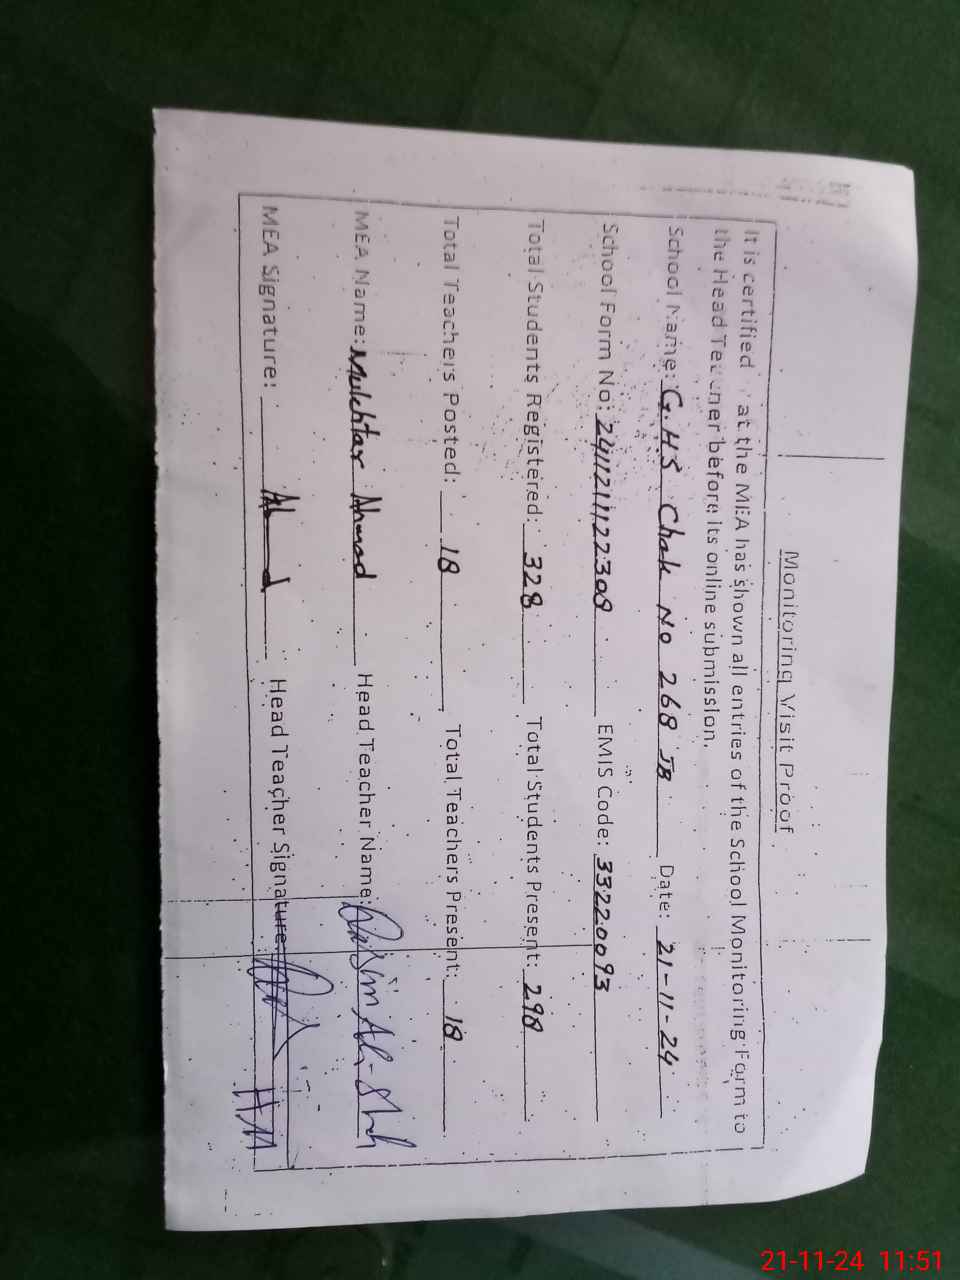 Monitoring Visit Proof
It is certified at the MEA has shown all entries of the School Monitoring Form to
the Head Teacher before its online submission.
School Name: G.H.S Chak No 268 JB Date: 21-11-24
School Form No: EMIS Code: 33220093
Total Students Registered: 328 Total Students Present: 298
Total Teachers Posted: 18 Total Teachers Present: 18
MEA Name: Mukhtar Ahmad Head Teacher Name:
MEA Signature: Head Teacher Signature:
H.M
21-11-24 11:51